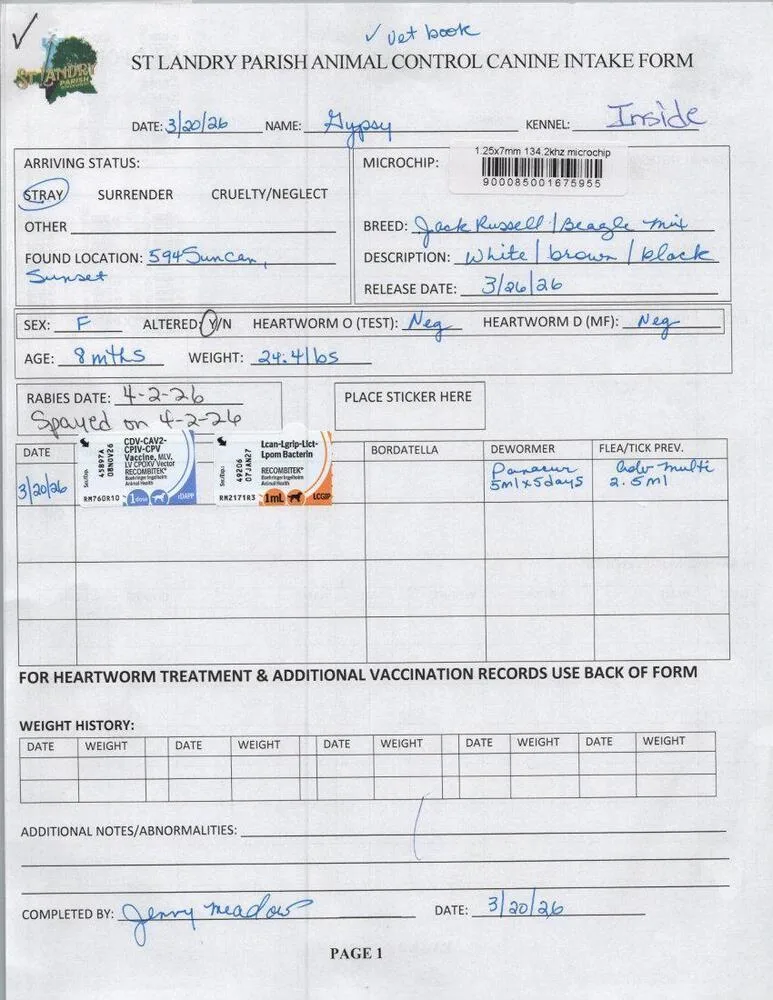 ✓ vet book
ST LANDRY PARISH
ST LANDRY PARISH ANIMAL CONTROL CANINE INTAKE FORM
DATE: 3/20/26 NAME: Gypsy KENNEL: Inside
ARRIVING STATUS:
STRAY SURRENDER CRUELTY/NEGLECT
OTHER
FOUND LOCATION: 594 Suncan,
Sunset
MICROCHIP: 1.25x7mm 134.2khz microchip
900085001675955
BREED: Jack Russell / Beagle mix
DESCRIPTION: White / brown / black
RELEASE DATE: 3/26/26
SEX: F ALTERED: Y/N HEARTWORM O (TEST): Neg HEARTWORM D (MF): Neg
AGE: 8 mths WEIGHT: 24.4 lbs
RABIES DATE: 4-2-26
Spayed on 4-2-26
PLACE STICKER HERE
DATE BORDATELLA DEWORMER FLEA/TICK PREV.
3/20/26
CDV-CAV2-
CPIV-CPV
Vaccine, MLV,
LV CPOXV Vector
RECOMBITEK®
Boehringer Ingelheim
Animal Health
Ser./Exp.
45897A
08NOV26
RM760R10 1 dose rDAPP
Lcan-Lgrip-Lict-
Lpom Bacterin
RECOMBITEK®
Boehringer Ingelheim
Animal Health
Ser./Exp.
49206
07JAN27
RM2171R3 1mL LCGIP
Panacur
5ml x 5days
Adv multi
2.5ml
FOR HEARTWORM TREATMENT & ADDITIONAL VACCINATION RECORDS USE BACK OF FORM
WEIGHT HISTORY:
DATE WEIGHT DATE WEIGHT DATE WEIGHT DATE WEIGHT DATE WEIGHT
ADDITIONAL NOTES/ABNORMALITIES:
COMPLETED BY: Jenny Meadows DATE: 3/20/26
PAGE 1